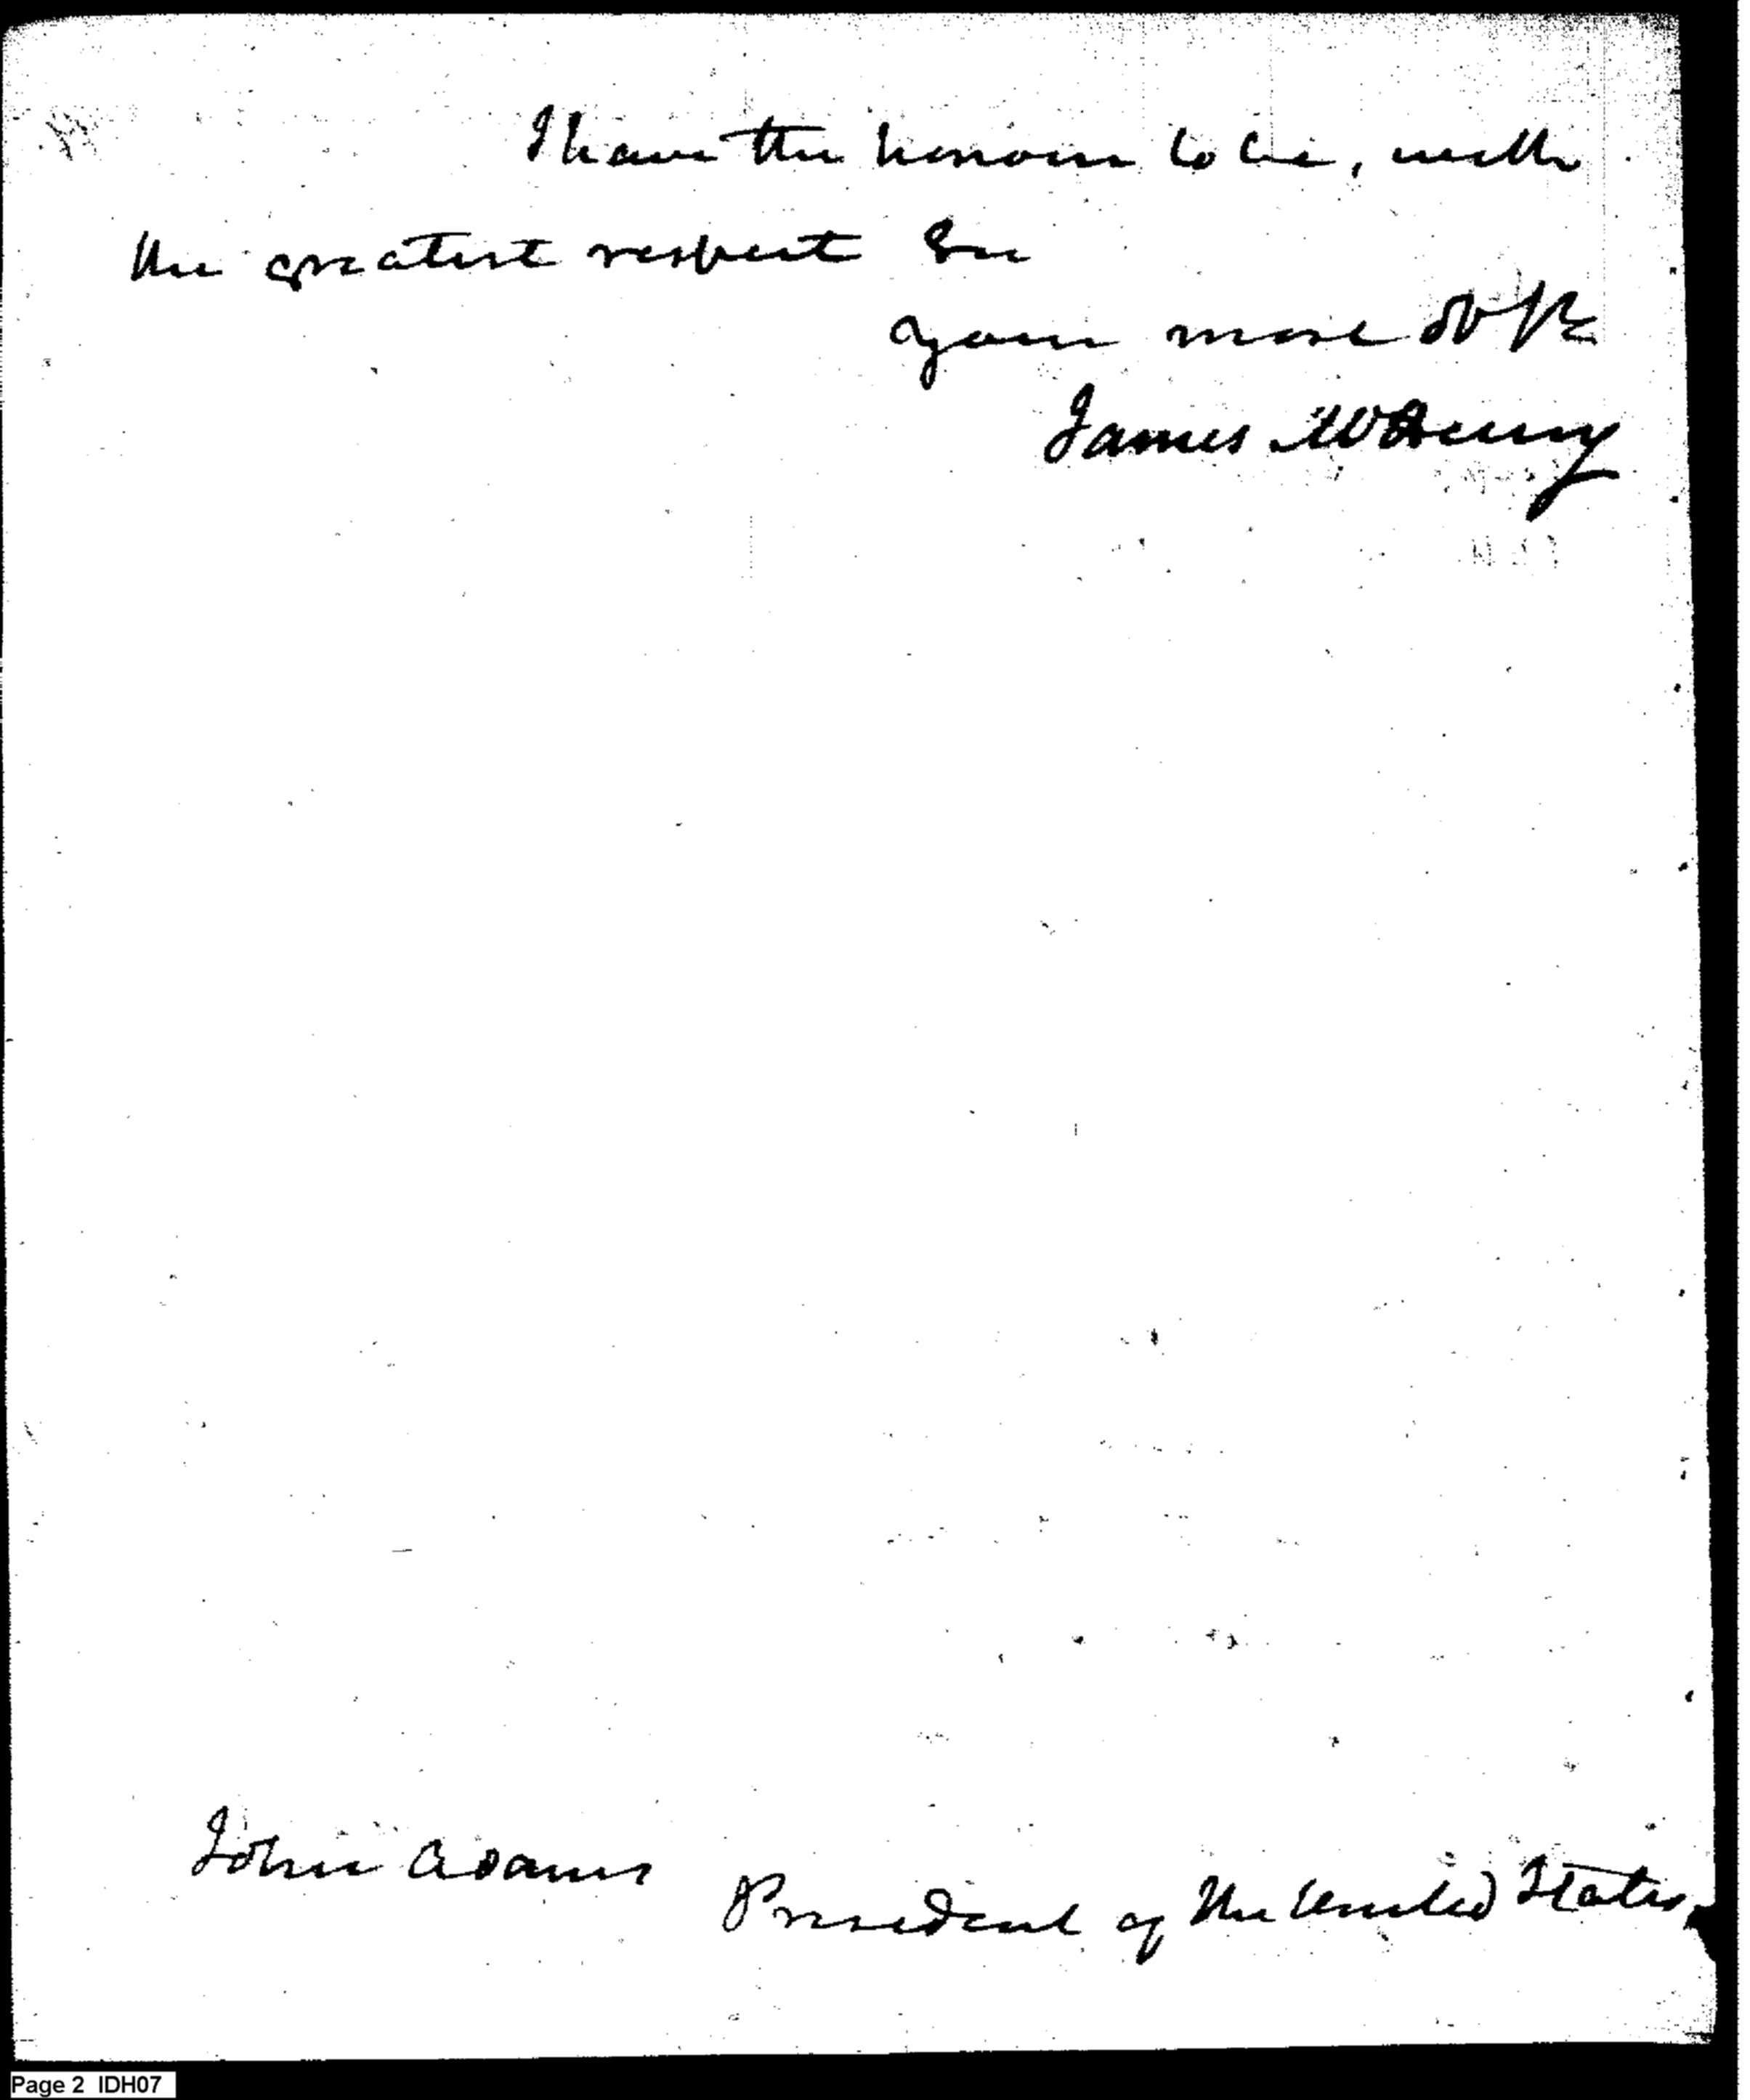 I have the honour to be, with
the greatest respect Sir
Your most Ob St
James McHenry
John Adams
President of the United States.
Page 2 IDH07